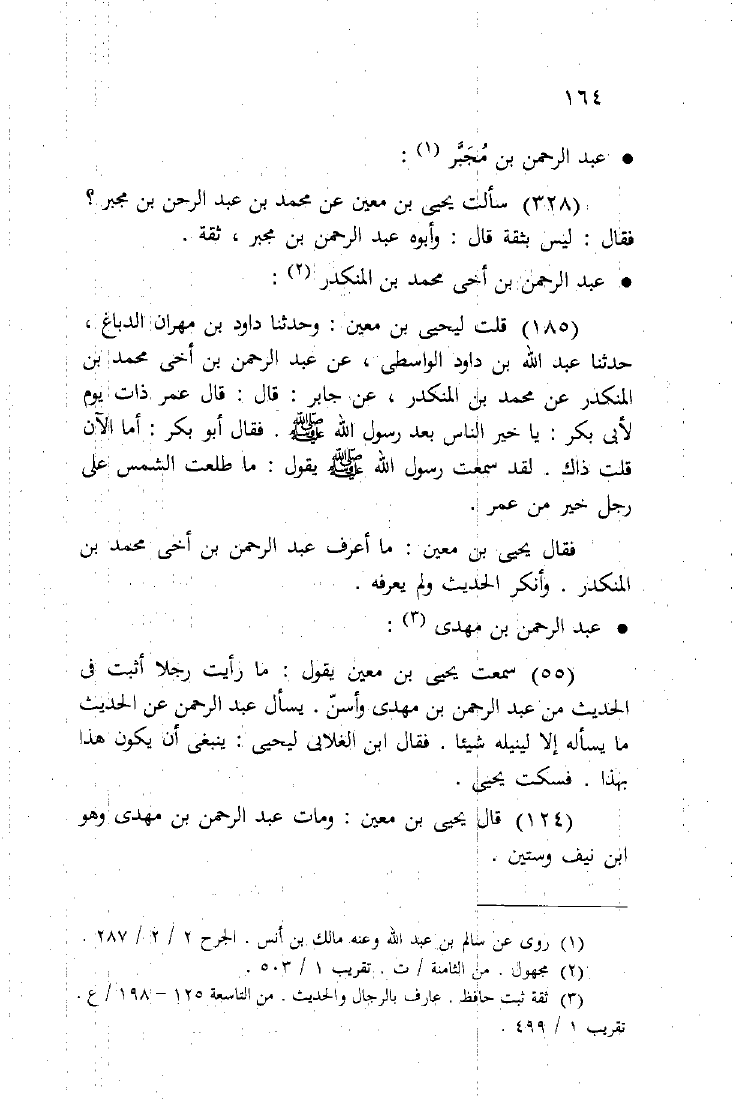 ١٦٤
● عبد الرحمن بن مُجَبَّر (١) :
(٣٢٨) سألت يحيى بن معين عن محمد بن عبد الرحن بن مجبر ؟
فقال : ليس بثقة قال : وأبوه عبد الرحمن بن مجبر ، ثقة .
● عبد الرحمن بن أخى محمد بن المنكدر (٢) :
(١٨٥) قلت ليحيى بن معين : وحدثنا داود بن مهران الدباغ ،
حدثنا عبد الله بن داود الواسطى ، عن عبد الرحمن بن أخى محمد بن
المنكدر عن محمد بن المنكدر ، عن جابر : قال : قال عمر ذات يوم
لأبى بكر : يا خير الناس بعد رسول الله ﷺ . فقال أبو بكر : أما الآن
قلت ذاك . لقد سمعت رسول الله ﷺ يقول : ما طلعت الشمس على
رجل خير من عمر .
فقال يحيى بن معين : ما أعرف عبد الرحمن بن أخى محمد بن
المنكدر . وأنكر الحديث ولم يعرفه .
● عبد الرحمن بن مهدى (٣) :
(٥٥) سمعت يحيى بن معين يقول : ما رأيت رجلا أثبت فى
الحديث من عبد الرحمن بن مهدى وأسنّ . يسأل عبد الرحمن عن الحديث
ما يسأله إلا لينيله شيئا . فقال ابن الغلابى ليحيى : ينبغى أن يكون هذا
بهذا . فسكت يحيى .
(١٢٤) قال يحيى بن معين : ومات عبد الرحمن بن مهدى وهو
ابن نيف وستين .
(١) روى عن سالم بن عبد الله وعنه مالك بن أنس . الجرح ٢ / ٢ / ٢٨٧ .
(٢) مجهول . من الثامنة / ت . تقريب ١ / ٥٠٣ .
(٣) ثقة ثبت حافظ . عارف بالرجال والحديث . من التاسعة ١٢٥ – ١٩٨ / ع .
تقريب ١ / ٤٩٩ .